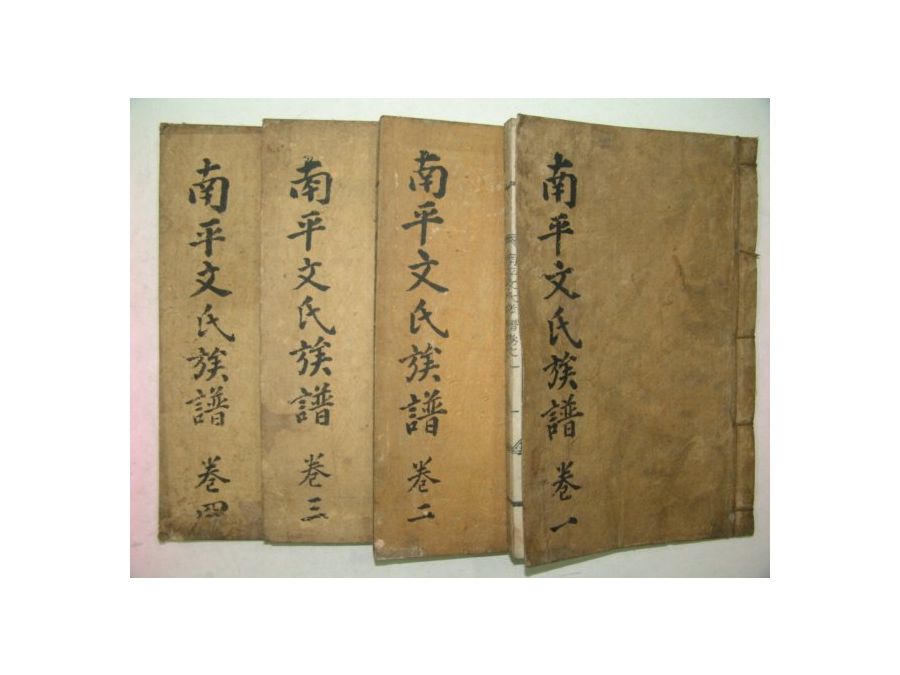 南平文氏族譜 卷一
南平文氏族譜 卷二
南平文氏族譜 卷三
南平文氏族譜 卷四